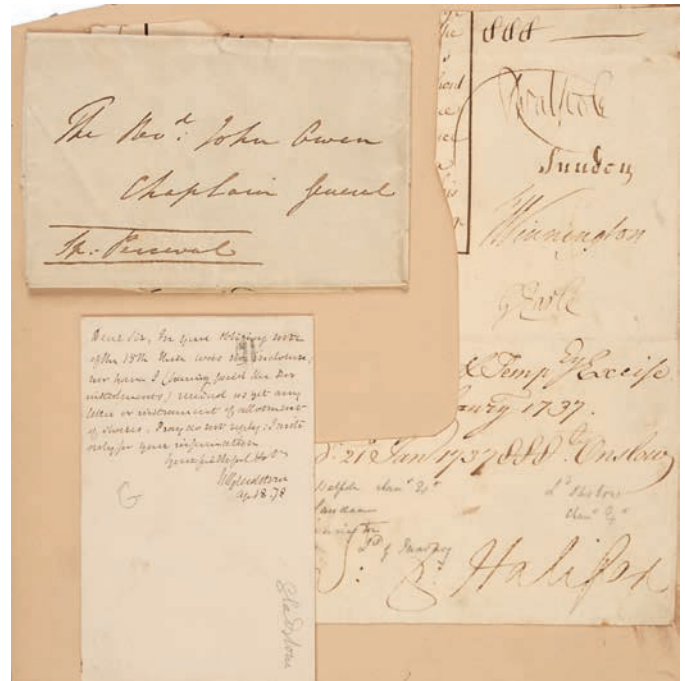 The Revd: John Owen
Chaplain General
Sp: Perceval
Dear Sir, In your obliging note
of the 15th there was no inclosure,
nor have I (having paid the two
instalments) received as yet any
letter or instrument of allotment
of shares. Pray do not reply: I write
only for your information
Your faithful Servt
WEGladstone
Ap 18. 78
G
Gladstone
888
RWalpole
Sundon
Winnington
GEarle
& Temp Ey Excise
1737.
21 Jan 1737 888 Onslow
Walpole chanr Exr
Sundon
Ld of Treasury
Halifax